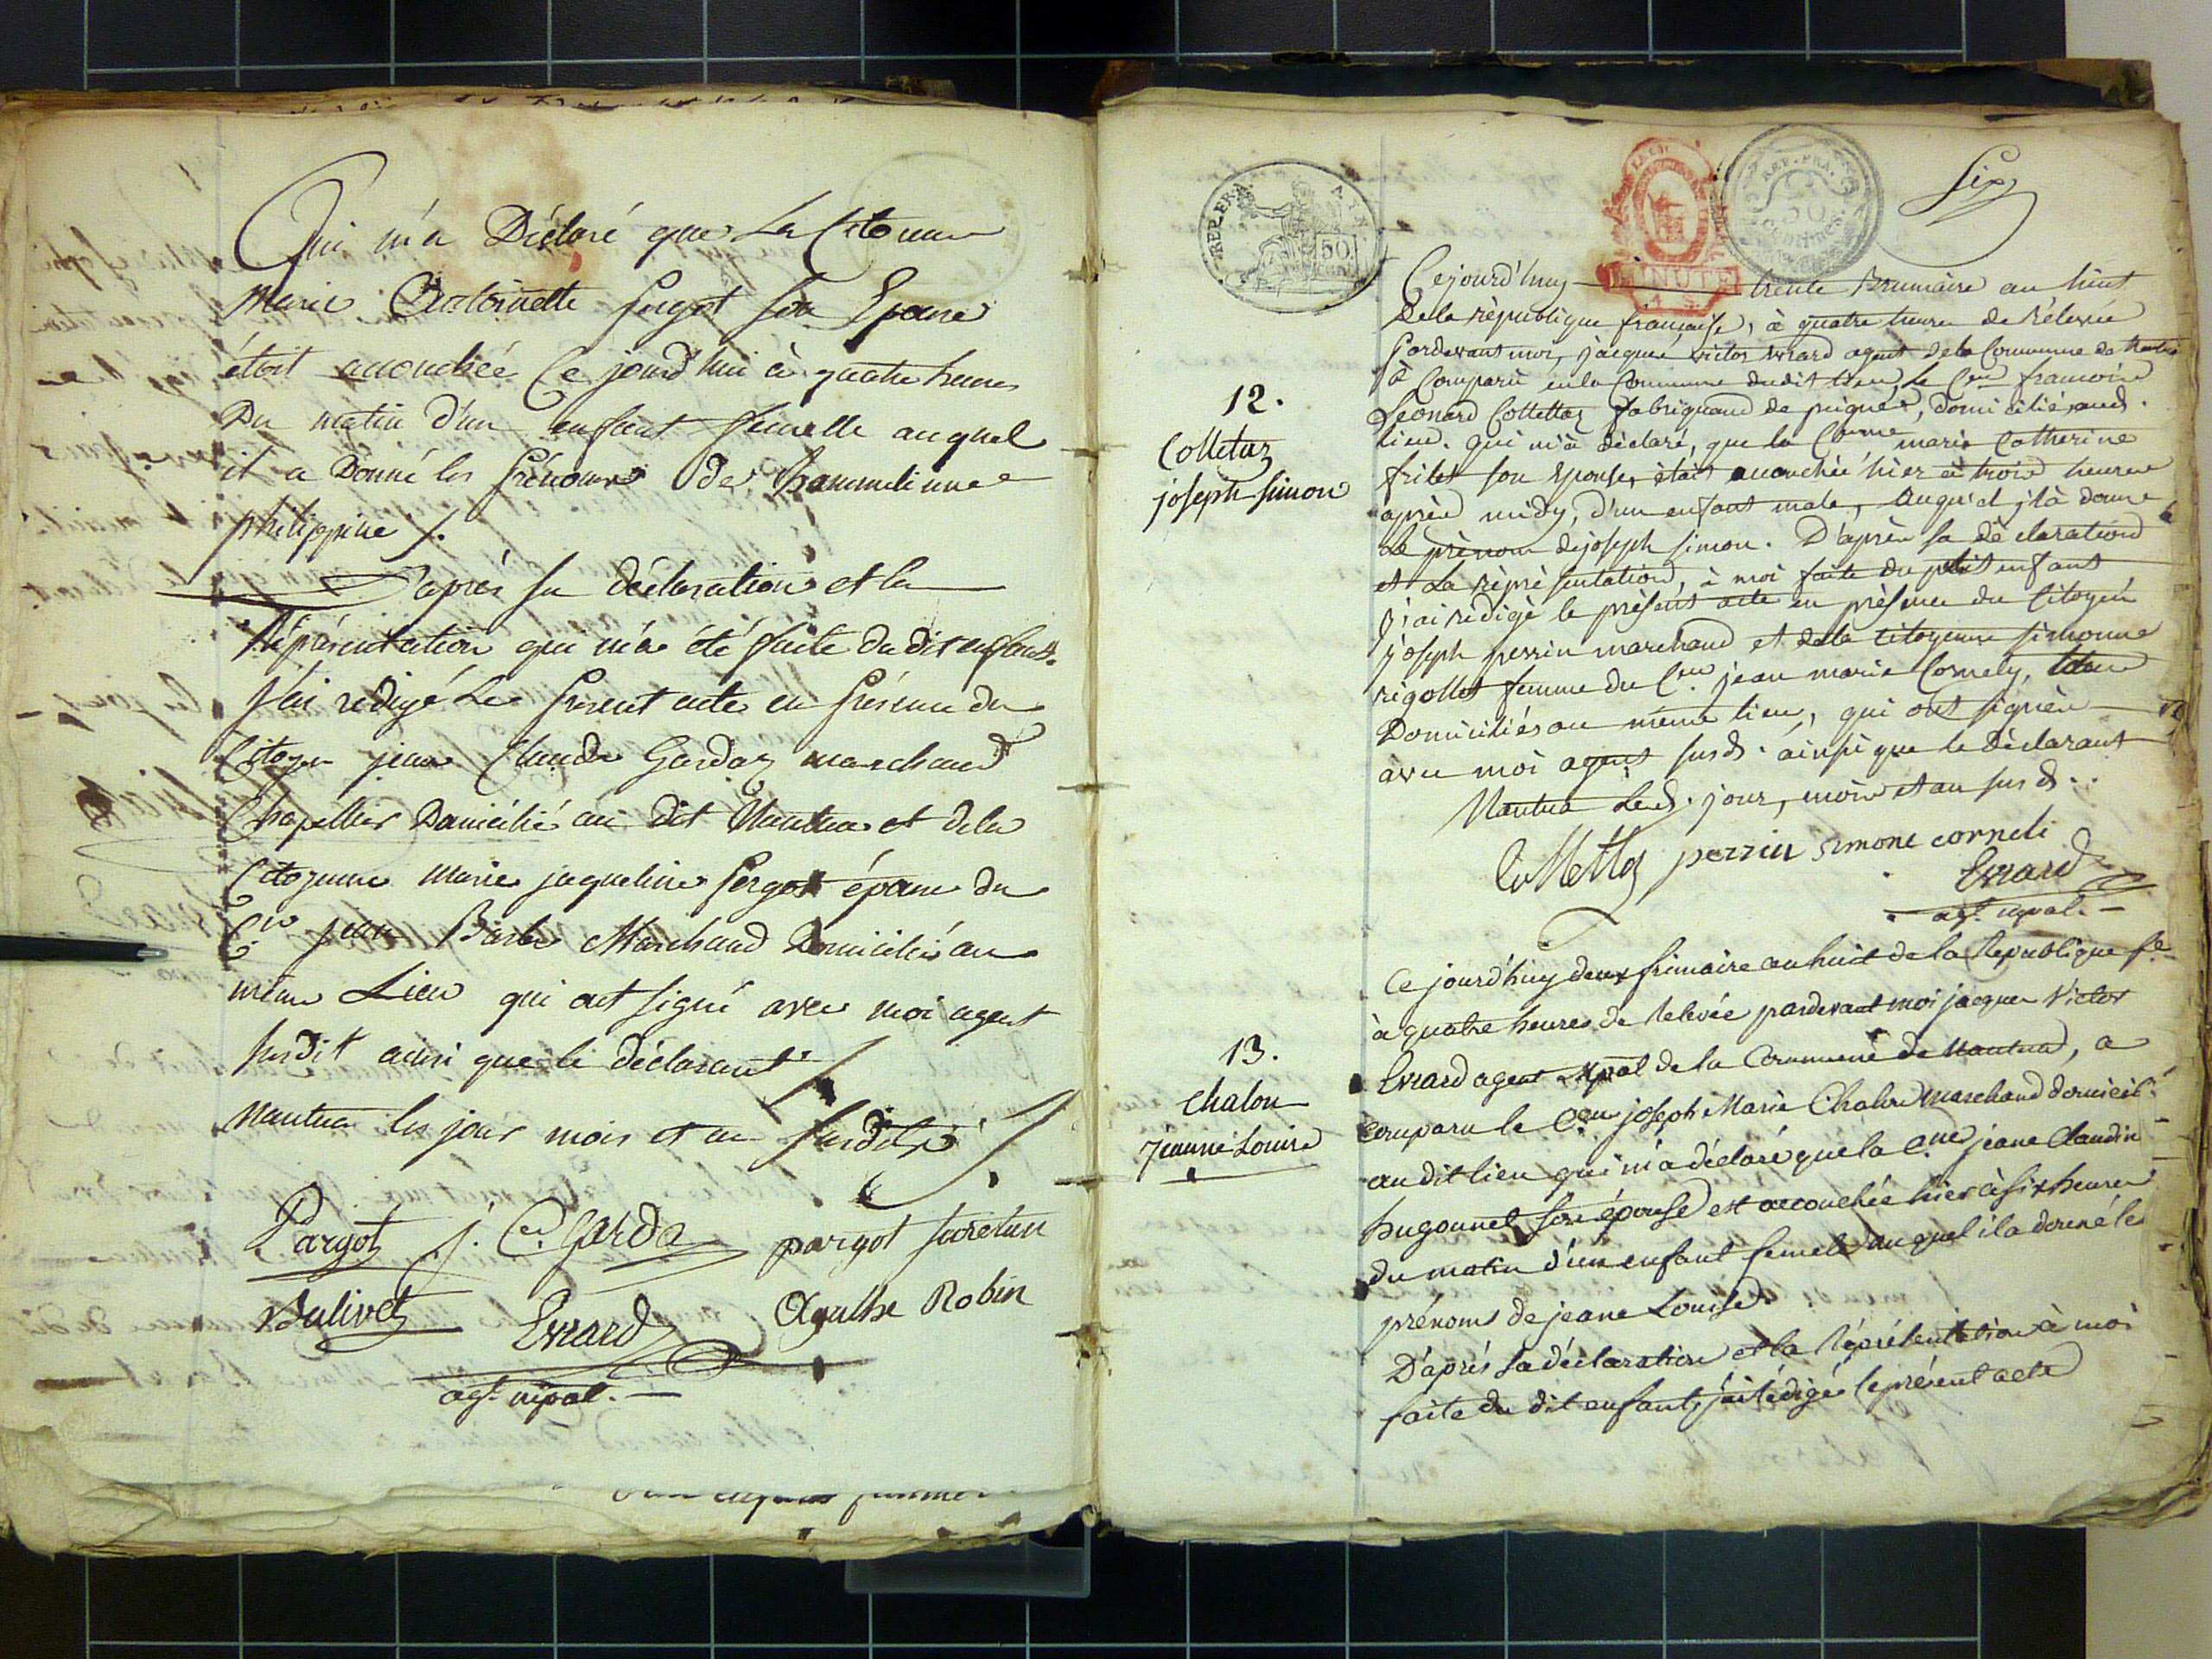 Qui m'a Déclaré que La Citoienne
Marie Antoinette pergot son Epouse
étoit accouchée Ce jourd'hui à quatre heures
Du matin d'un enfant femelle auquel
il a Donné les prénoms de
philippine /.
D'après sa déclaration et la
Réprésentation qui m'a été faite du dit enfant.
J'ai redigé Le present acte en présence du
Citoyen jean Claude Gardaz marchand
Chapellier Domicilié au dit Nantua et dela
Citoyenne Marie jaqueline pergot épouse du
Cen jean Marchand Domicilié au
même Lieu qui ont signé avec moi agent
susdit ainsi que le déclarant
Nantua les jour mois et an susdits
Pargot j. C. Garda pargot
Balivet Evrard Agathe Robin
agt. mpal.
REP. FRA. AIN
50. CENT
MINUTE
REP. FRA.
50 Centimes
Six
12.
Colletaz
joseph simon
Cejourd'huy trente Brumaire an huit
Dela république française, à quatre heures de rélevée
pardevant moi, jacques victor Evrard agent dela Commune de
à Comparu en la Commune dudit lieu, le Cen françois
Leonard Collettaz fabriquand de peignes, domicilié, aud.
lieu. qui m'à déclaré, que la Cenne marie Catherine
son Epouse, était accouchée hier à trois heures
après midy, d'un enfant male, auquel jl à donné
Le prénom dejoseph simon. D'après sa déclaration
et La réprésentation, à moi faite du petit enfant
j'ai rédigé le présent acte en présence du Citoyen
joseph perrin marchand et dela Citoyenne simonne
rigollet femme du Cen jean marie Cornely, tous
Domiciliés au même lieu, qui ont signés
avec moi agent susd. ainsi que le déclarant
Nantua Led. jour, mois et an susd.
Collettaz perrin simone corneli
Evrard
agt. mpal.
13.
Chalon
jeanne Louise
Ce jourd'huy deux frimaire an huit de la Republique fse
à quatre heures de relevée pardevant moi jacques Victor
Evrard agent Mpal de la Commune de Nantua, a
comparu le Cen joseph Marie Chalon marchand domicilié
au dit lieu qui m'a déclaré que la Cne jeane Claudine
hugonnet son épouse est accouchée hier à six heures
du matin d'un enfant femele auquel il a donné les
prénoms de jeane Louise.
D'après sa déclaration et la Réprésentation à moi
faite du dit enfant, j'ai rédigé le présent acte